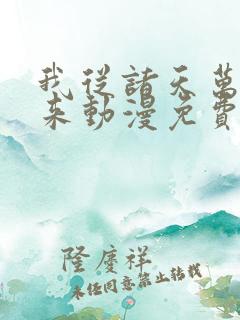 我從諸天萬
來動漫免費
隆慶祥
未经同意禁止转载